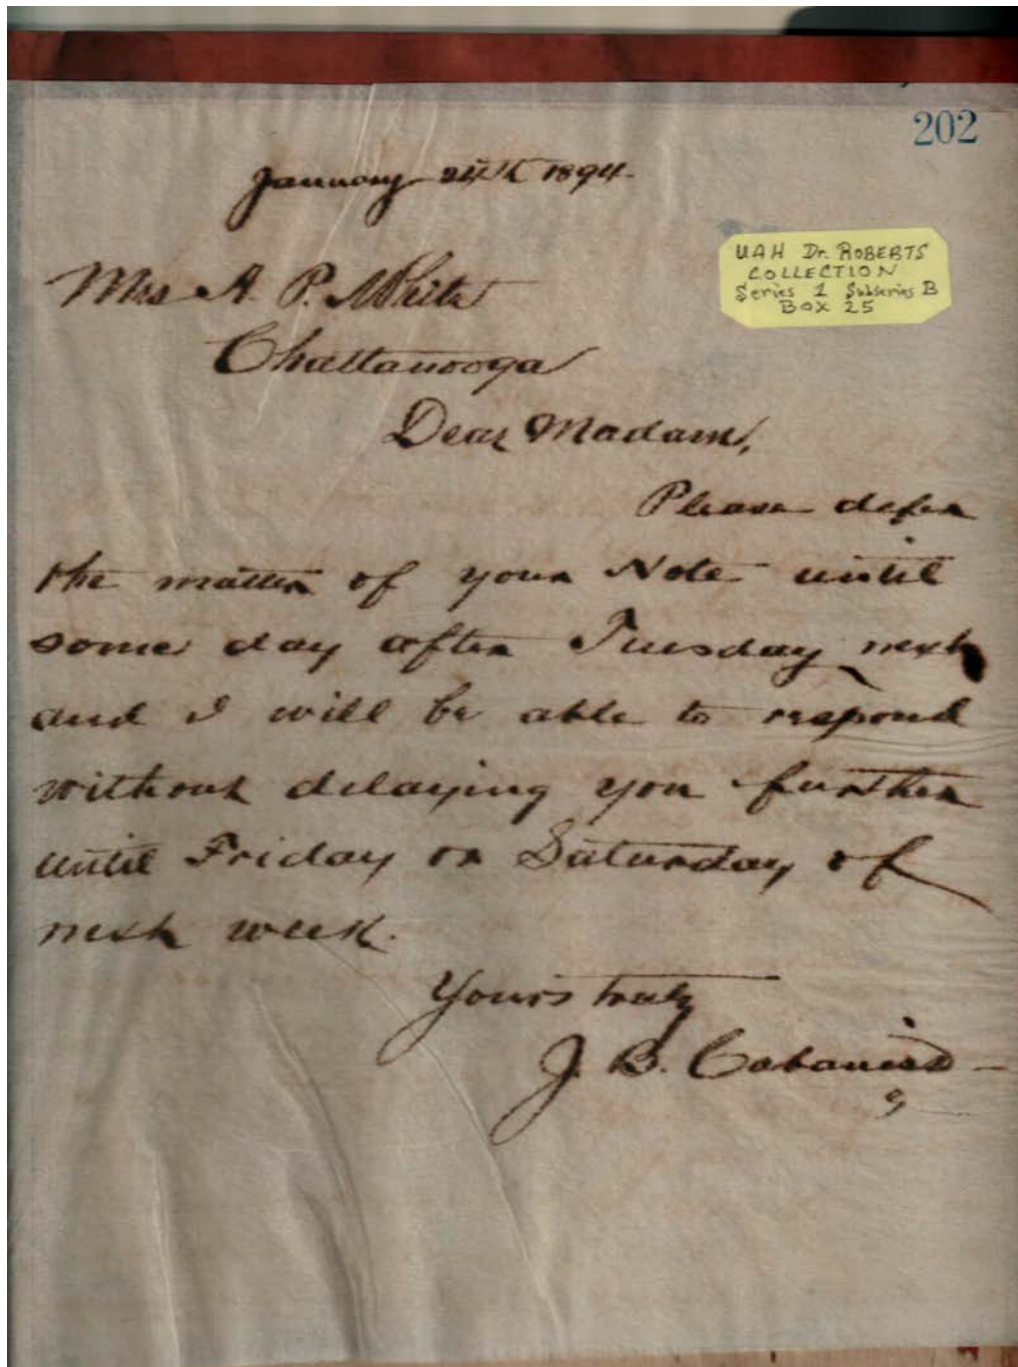 202
January 24th 1894.
UAH Dr. ROBERTS
COLLECTION
Series 1 Subseries B
BOX 25
Mrs A. P. White
Chattanooga
Dear Madam,
Please defer
the matter of your Note until
some day after Tuesday next
and I will be able to respond
without delaying you further
until Friday or Saturday of
next week.
Yours truly
J. B. Cabaniss